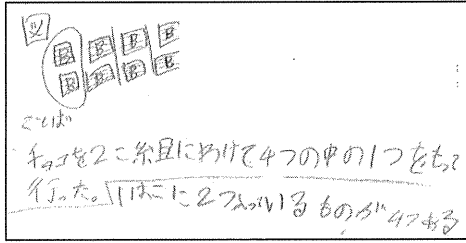 図
B B B B
B B B B
ことば
チョコを2こ組にわけて4つの中の1つをもって
行った。1はこに2つ入っているものが4つある